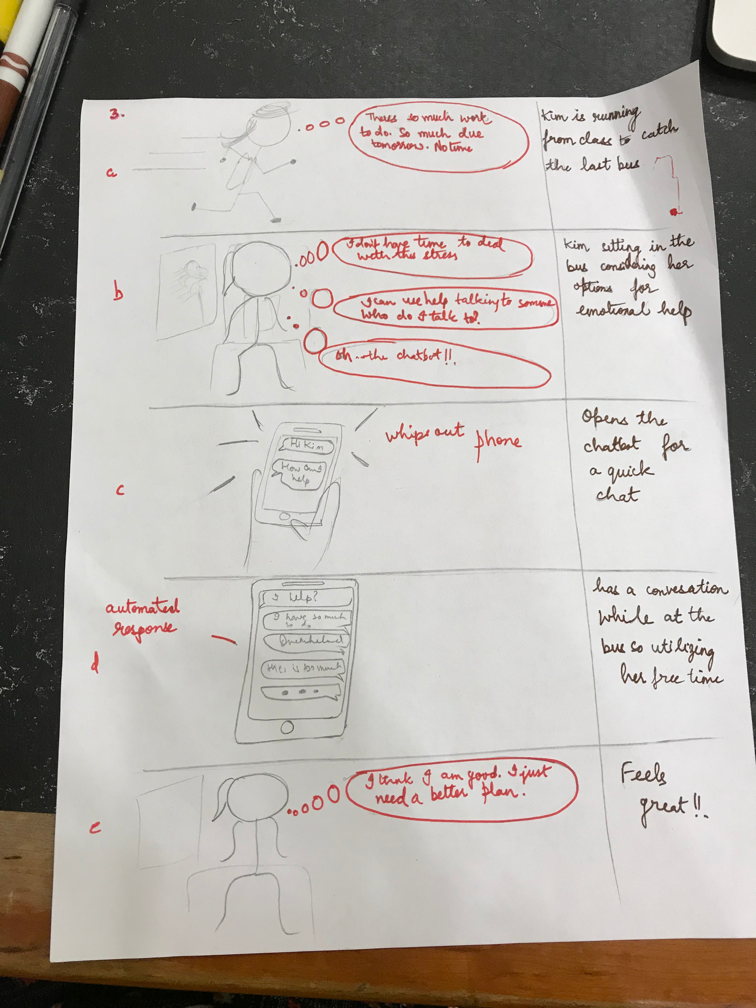 3.
a
Theres so much work
to do. So much due
tomorrow. No time
Kim is running
from class to catch
the last bus
b
I don't have time to deal
with this stress
I can use help talking to someone
Who do I talk to?
Oh... the chatbot!!
Kim sitting in the
bus considering her
options for
emotional help
c
Hi Kim
How can I
help
whips out phone
Opens the
chatbot for
a quick
chat
automated
response
d
I help?
I have so much
to do
Overwhelmed
is too much
has a convesation
while at the
bus so utilizing
her free time
e
I think I am good. I just
need a better plan.
Feels
great!!.